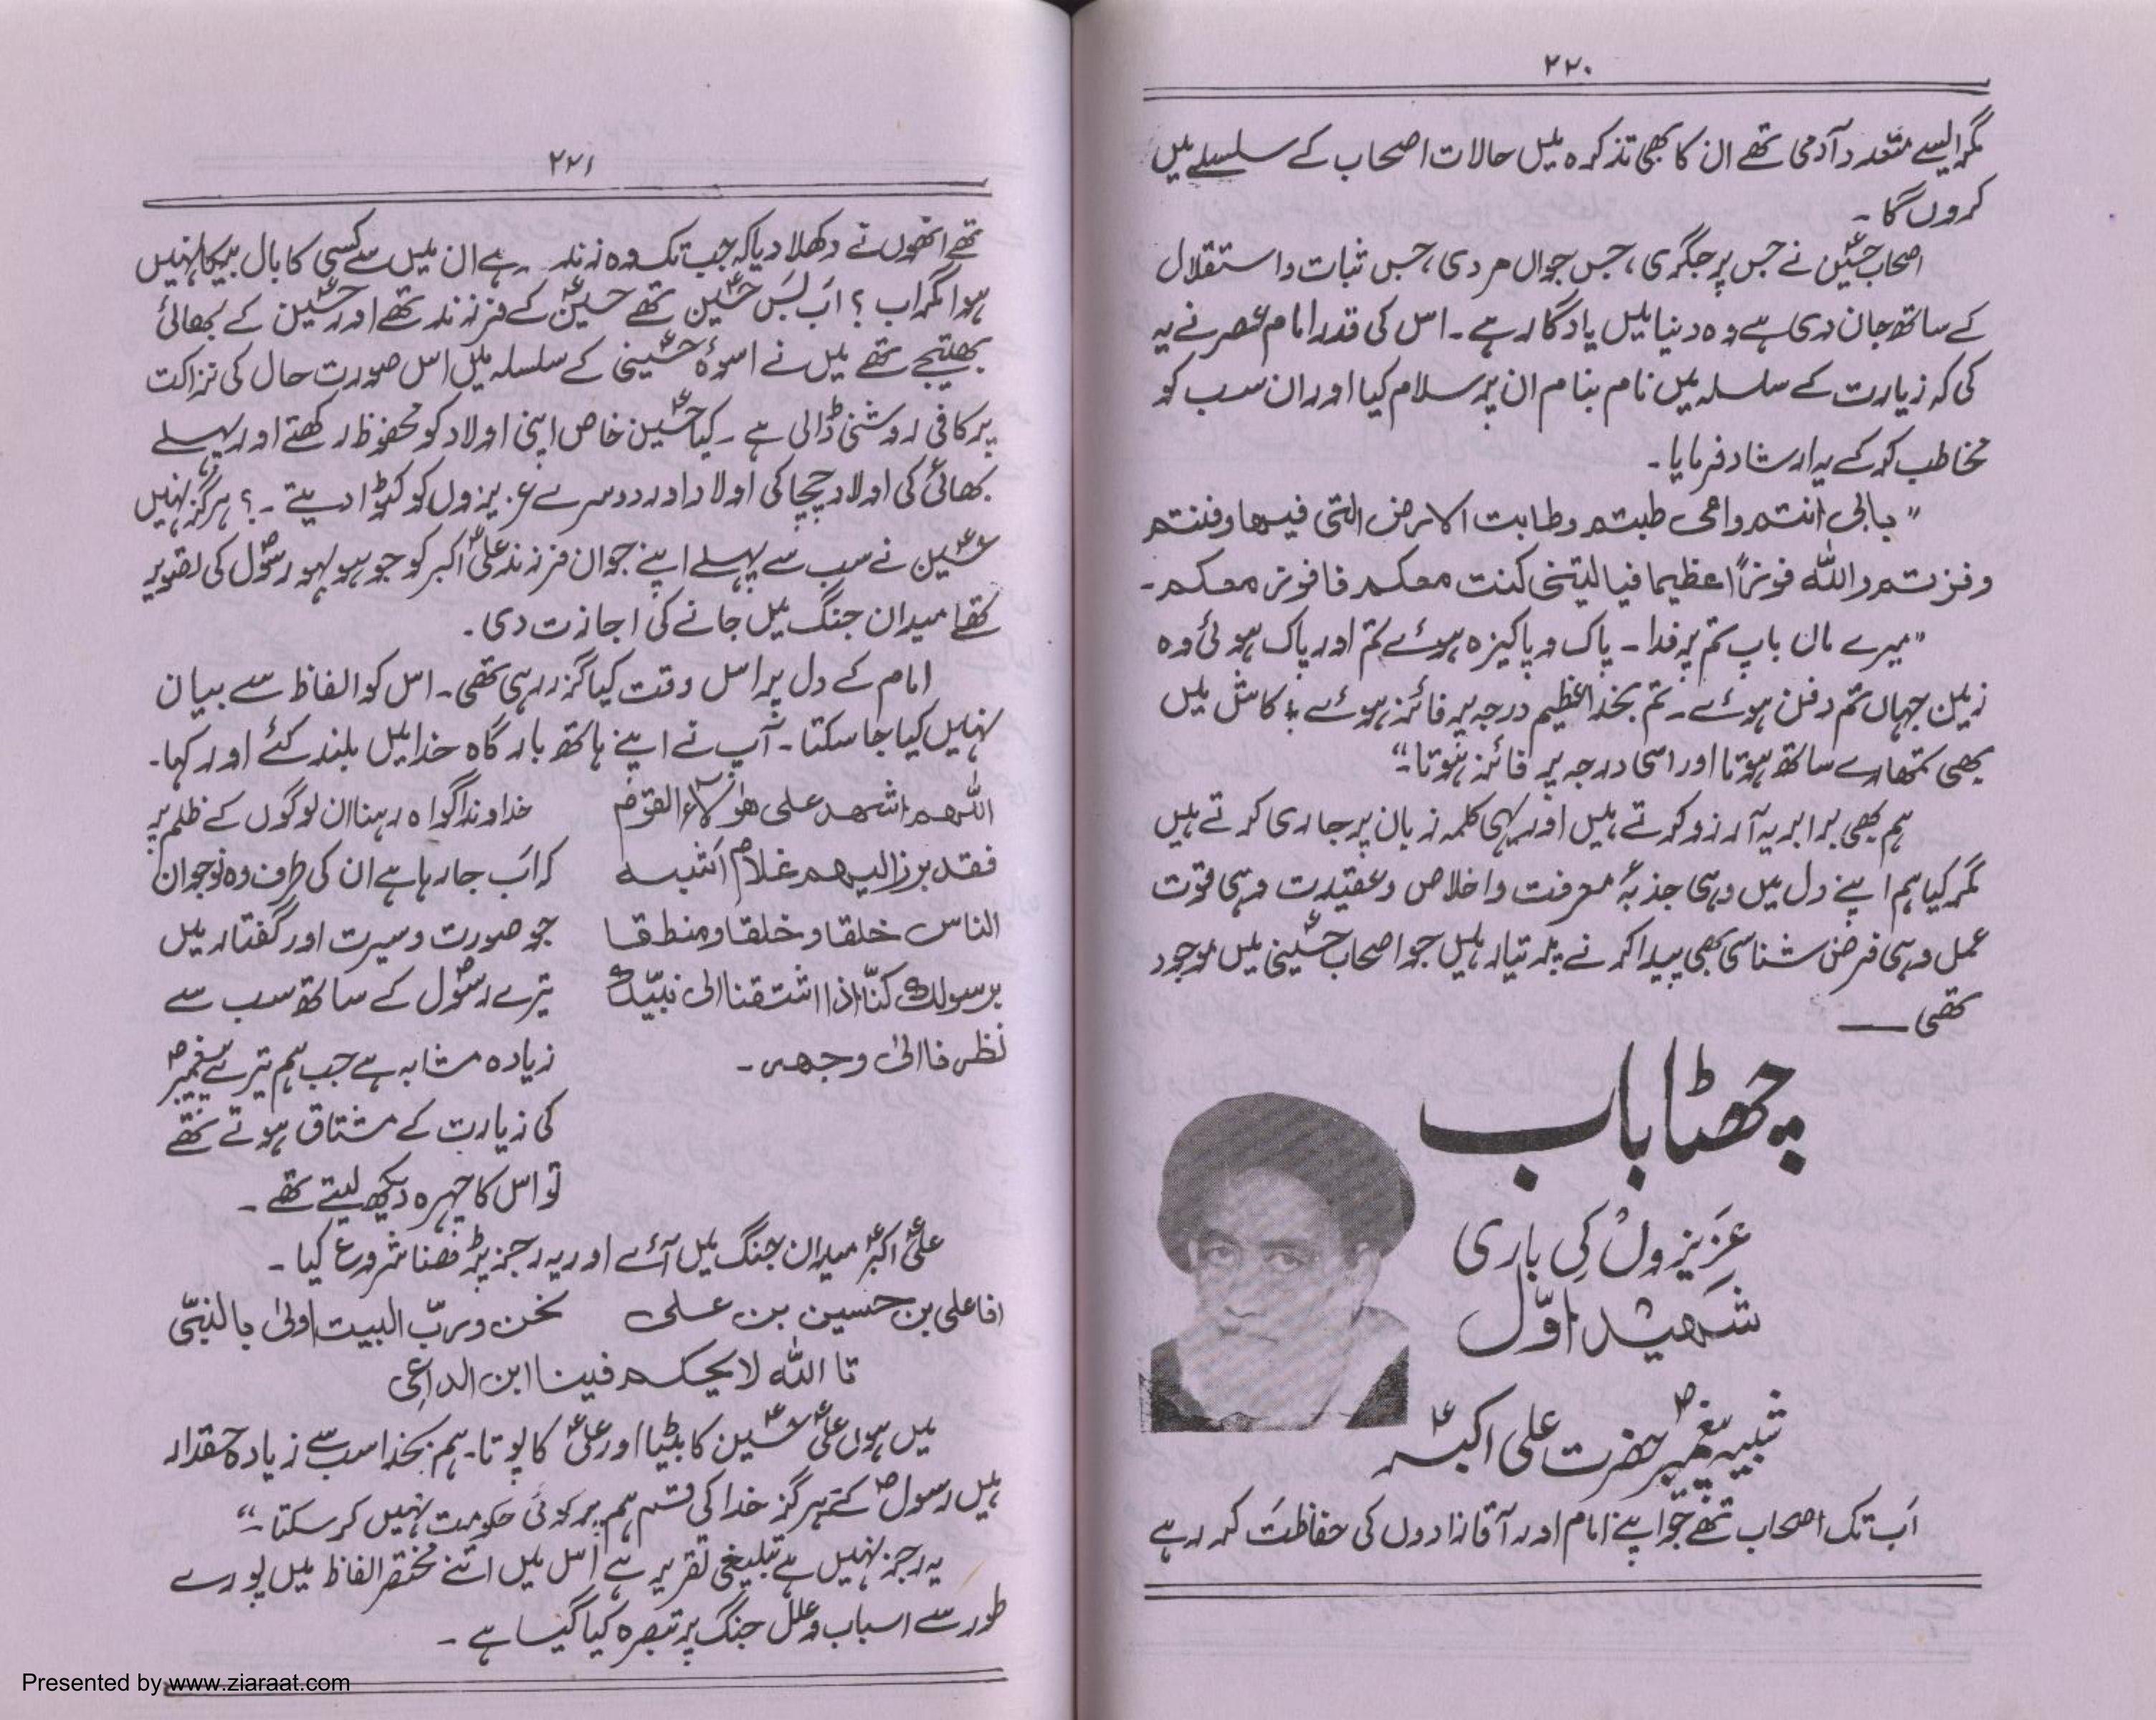 ۲۲۰
مگر ایسے متعدد آدمی تھے ان کا بھی تذکرہ میں حالات اصحاب کے سلسلے میں
کروں گا ۔
اصحاب حسینؑ نے جس پر جگری ، جس جواں مردی ، جس ثبات و استقلال
کے ساتھ جان دی ہے وہ دنیا میں یادگار ہے ۔ اس کی قدر امام عصر نے یہ
کی کہ زیارت کے سلسلہ میں نام بنام ان پر سلام کیا اور ان سب کو
مخاطب کر کے یہ ارشاد فرمایا ۔
" بابی انتم وامی طبتم وطابت الارض التی فیہا دفنتم
وفزتم واللہ فوزاً عظیما فیالیتنی کنت معکم فافوز معکم ۔
" میرے ماں باپ تم پر فدا ۔ پاک و پاکیزہ ہوئے تم اور پاک ہوئی وہ
زمین جہاں تم دفن ہوئے ۔ تم بخدا عظیم درجہ پر فائز ہوئے ، کاش میں
بھی تمھارے ساتھ ہوتا اور اسی درجہ پر فائز ہوتا ۔"
ہم بھی برابر یہ آرزو کرتے ہیں اور یہی کلمہ زبان پر جاری کرتے ہیں
مگر کیا ہم اپنے دل میں وہی جذبۂ معرفت و اخلاص و عقیدت وہی قوت
عمل وہی فرض شناسی بھی پیدا کرنے پر تیار ہیں جو اصحاب حسینیؑ میں موجود
تھی ——
چھٹا باب
عزیزوں کی باری
شہید اوّل
شبیہ پیغمبرؐ حضرت علی اکبرؑ
اب تک اصحاب تھے جو اپنے امام اور آقازادوں کی حفاظت کر رہے
۲۲۱
تھے انھوں نے دکھلا دیا کہ جب تک وہ زندہ رہے ان میں سے کسی کا بال بیکا نہیں
ہوا مگر اب ؟ اب بس حسینؑ تھے حسینؑ کے فرزند تھے اور حسینؑ کے بھائی
بھتیجے تھے میں نے اسوۂ حسینیؑ کے سلسلہ میں اس صورت حال کی نزاکت
پر کافی روشنی ڈالی ہے ۔ کیا حسینؑ خاص اپنی اولاد کو محفوظ رکھتے اور پہلے
بھائی کی اولاد چچا کی اولاد اور دوسرے عزیزوں کو کٹوا دیتے ۔ ؟ ہرگز نہیں
حسینؑ نے سب سے پہلے اپنے جوان فرزند علیؑ اکبر کو جو ہو بہو رسولؐ کی تصویر
تھا میدان جنگ میں جانے کی اجازت دی ۔
امام کے دل پر اس وقت کیا گزر رہی تھی ۔ اس کو الفاظ سے بیان
نہیں کیا جا سکتا ۔ آپ نے اپنے ہاتھ بارگاہ خدا میں بلند کئے اور کہا ۔
اللھم اشھد علی ھؤلاء القوم
فقد برز الیھم غلام اشبہ
الناس خلقا و خلقا و منطقا
برسولک کنّا اذا اشتقنا الی نبیّک
نظرنا الیٰ وجھہ ۔
خداوندا گواہ رہنا ان لوگوں کے ظلم پر
کہ اب جا رہا ہے ان کی طرف وہ نوجوان
جو صورت و سیرت اور گفتار میں
تیرے رسولؐ کے ساتھ سب سے
زیادہ مشابہ ہے جب ہم تیرے پیغمبرؐ
کی زیارت کے مشتاق ہوتے تھے
تو اس کا چہرہ دیکھ لیتے تھے ۔
علیؑ اکبرؑ میدان جنگ میں آئے اور یہ رجز پڑھنا شروع کیا ۔
انا علی بن حسین بن علی نحن و ربّ البیت اولیٰ بالنبیّ
تا اللہ لا یحکم فینا ابن الداعی
میں ہوں علیؑ حسینؑ کا بیٹا اور علیؑ کا پوتا ۔ ہم بخدا سب سے زیادہ حقدار
ہیں رسولؐ کے ہرگز خدا کی قسم ہم پر کوئی حکومت نہیں کر سکتا ۔"
یہ رجز نہیں ہے تبلیغی تقریر ہے اس میں اتنے مختصر الفاظ میں پورے
طور سے اسباب و علل جنگ پر تبصرہ کیا گیا ہے ۔
Presented by www.ziaraat.com